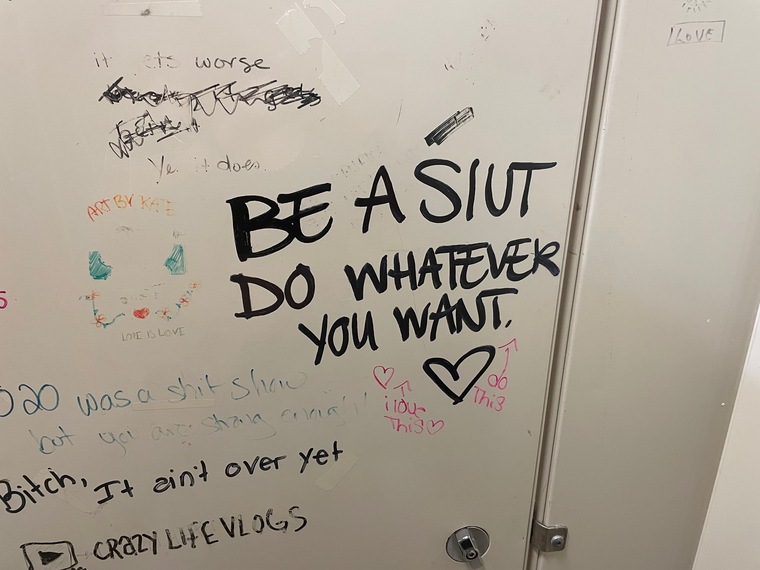 it ets worse
Ye it does.
ART BY KATE
LOVE IS LOVE
BE A SIUT
DO WHATEVER
YOU WANT.
i love
This
do
This
2020 was a shit show
but ya are strong enough
Bitch, It ain't over yet
CRAZY LIFE VLOGS
LOVE